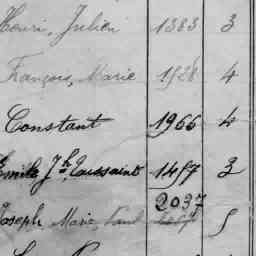 Henri, Julien 1383 3
François, Marie 1928 4
Constant 1966 4
Emile Jh Toussaint 1497 3
2037
Joseph Marie, Paul 5